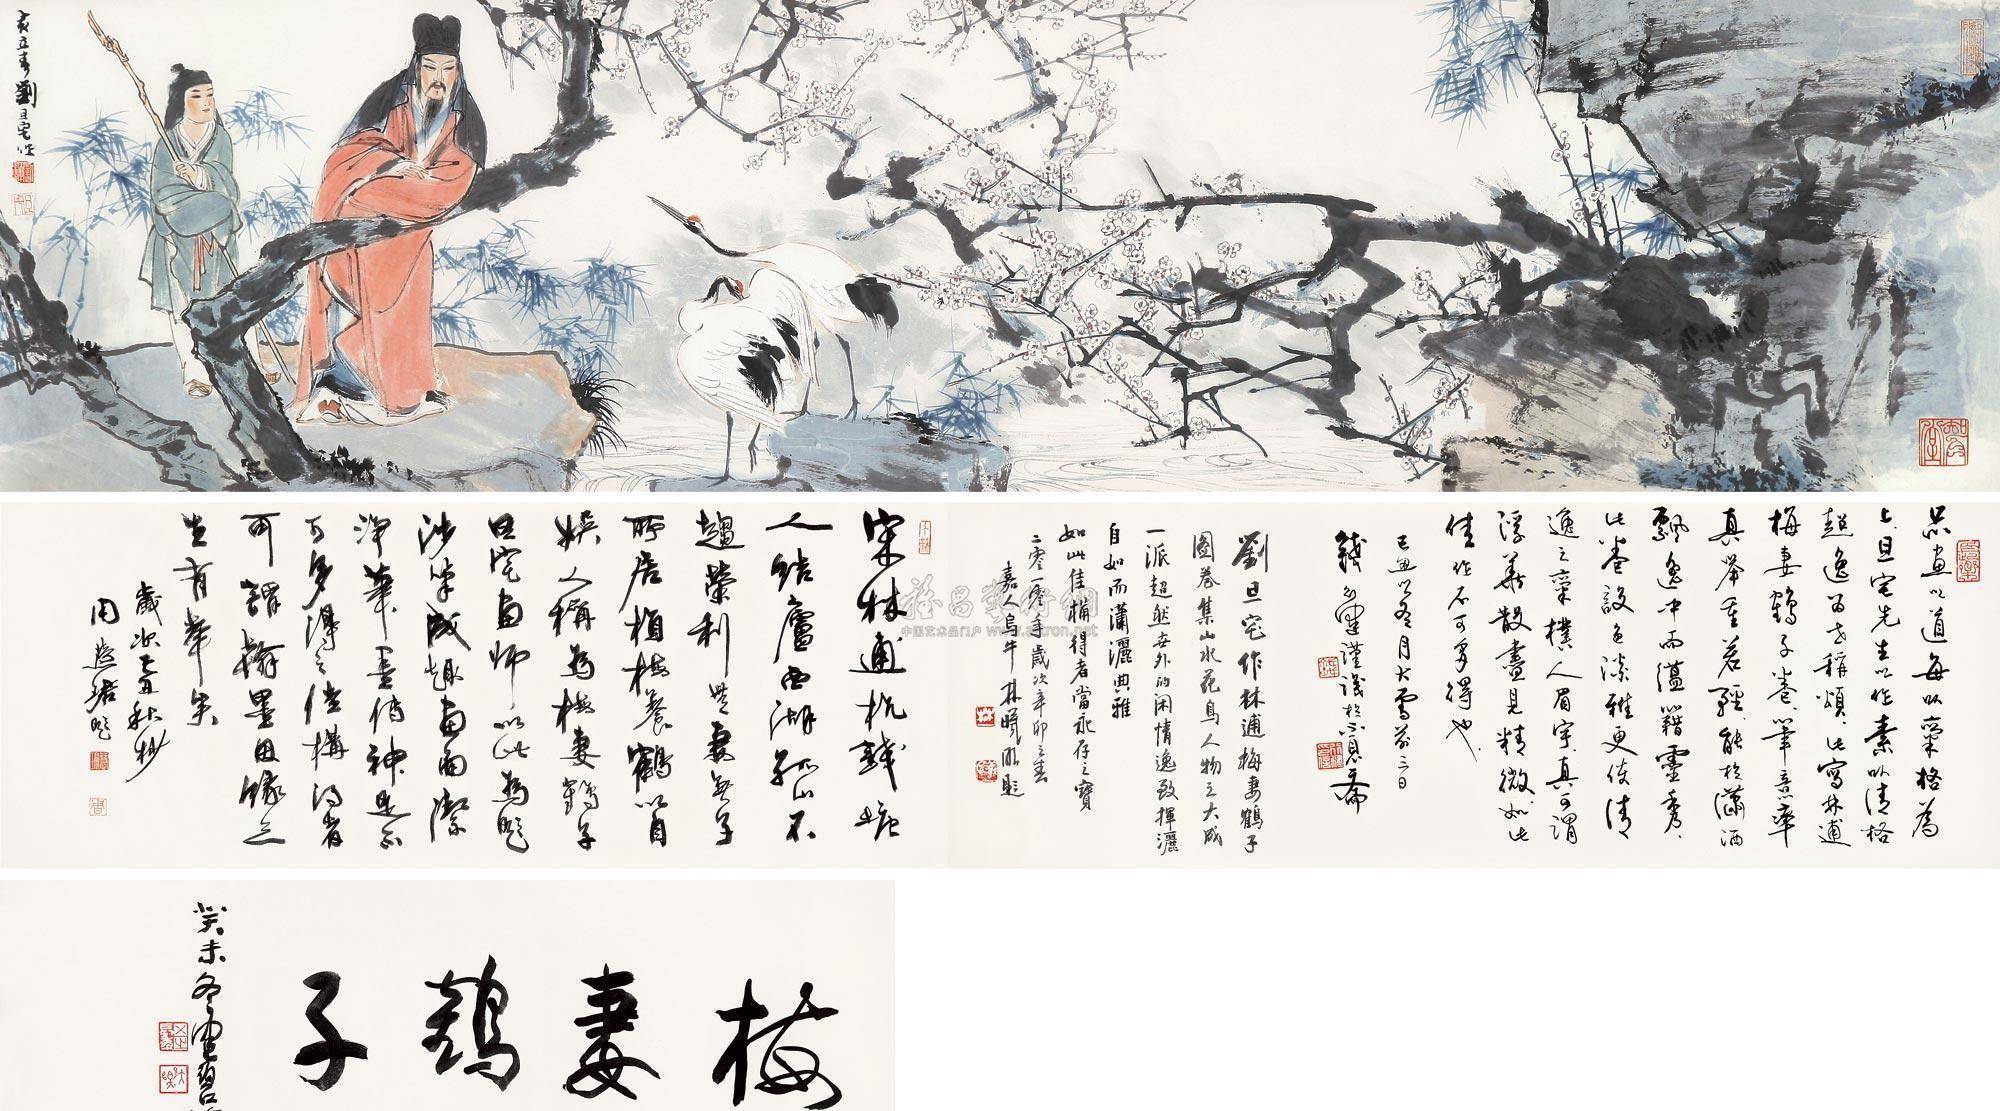 亥立春劉旦宅作
品畫以道每以稟格為
上旦宅先生以作素以清格
超逸為世稱頌此寫林逋
梅妻鶴子卷筆意率
真舉重若輕能於瀟洒
飄逸中而蘊籍靈秀
此卷設色淡雅更使清
逸之稟樸人眉宇真可謂
浮華散盡見精微如此
佳作不可多得也
己丑以冬月大雪前三日
謹識於
劉旦宅作林逋梅妻鶴子
圖卷集山水花鳥人物之大成
一派超然世外的闲情逸致揮灑
自如而瀟灑典雅
如此佳構得者當永存之寶
二零一零年歲次辛卯之春
嘉人烏牛林曉 題
宋林逋杭錢塘
人結廬西湖孤山不
趨榮利無妻無子
所居植梅養鶴以自
娛人稱為梅妻鶴子
旦宅畫師以此為題
涉筆成趣畫面潔
淨筆墨傳神是不
可多得之佳構得者
可謂翰墨因緣三
生有幸矣
歲次乙丑秋杪
周 題
梅妻鶴子
癸未冬
中国艺术品门户 www.artron.net